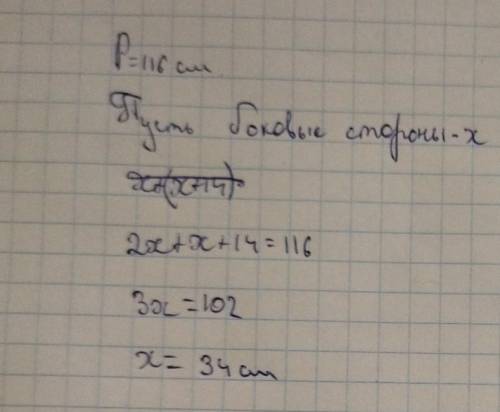 P=116 см
Пусть боковые стороны-x
x+(x+14)
2x+x+14=116
3x=102
x= 34 см